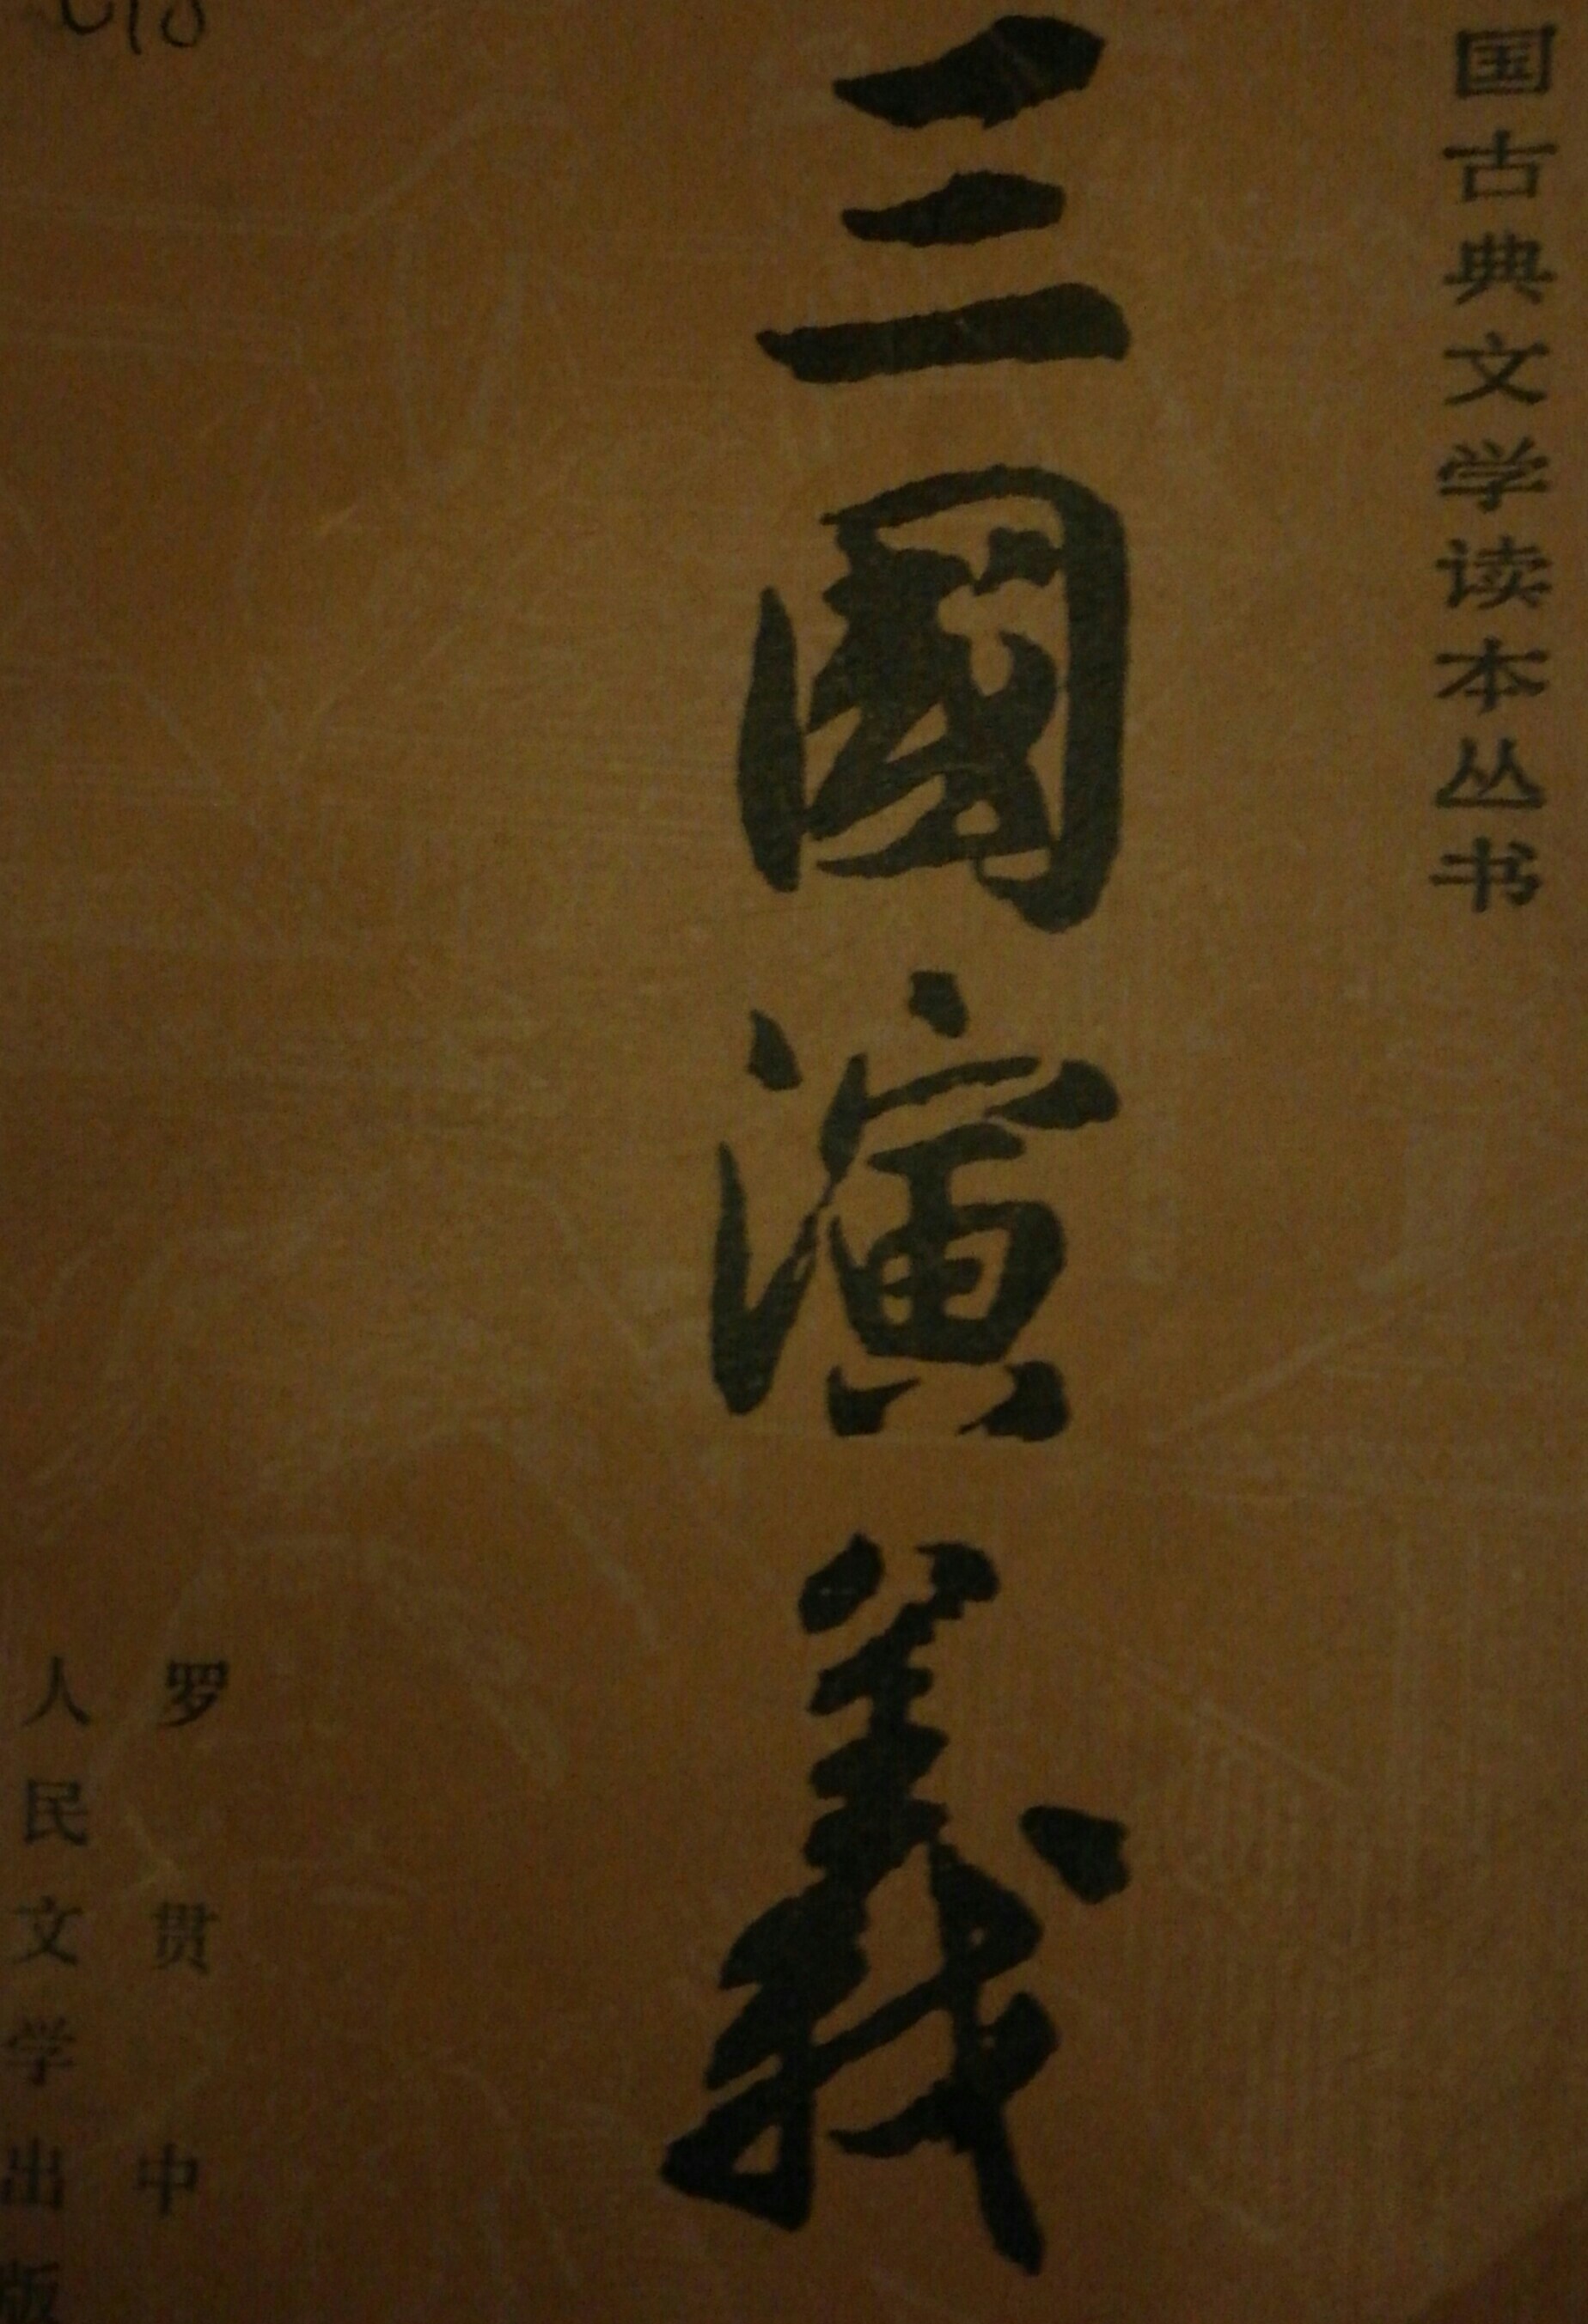 国古典文学读本丛书
三國演義
罗贯中
人民文学出版